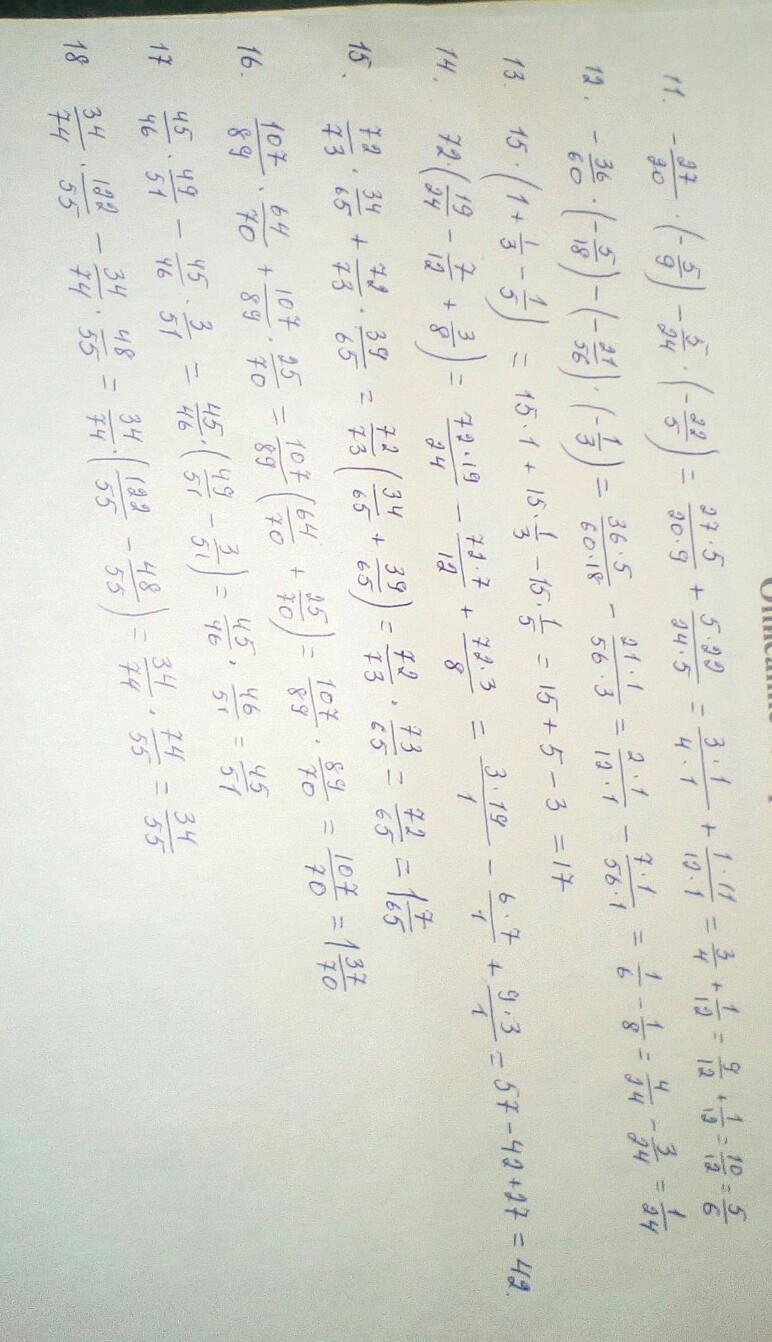 11. -27/20 · (-5/9) - 5/24 · (-22/5) = 27·5/20·9 + 5·22/24·5 = 3·1/4·1 + 1·11/12·1 = 3/4 + 1/12 = 9/12 + 1/12 = 10/12 = 5/6
12. -36/60 · (-5/18) - (-21/56) · (-1/3) = 36·5/60·18 - 21·1/56·3 = 2·1/12·1 - 7·1/56·1 = 1/6 - 1/8 = 4/24 - 3/24 = 1/24
13. 15 · (1 + 1/3 - 1/5) = 15·1 + 15·1/3 - 15·1/5 = 15 + 5 - 3 = 17
14. 72·(19/24 - 7/12 + 3/8) = 72·19/24 - 72·7/12 + 72·3/8 = 3·19/1 - 6·7/1 + 9·3/1 = 57 - 42 + 27 = 42.
15. 72/73 · 34/65 + 72/73 · 39/65 = 72/73 (34/65 + 39/65) = 72/73 · 73/65 = 72/65 = 1 7/65
16. 107/89 · 64/70 + 107/89 · 25/70 = 107/89 (64/70 + 25/70) = 107/89 · 89/70 = 107/70 = 1 37/70
17 45/46 · 49/51 - 45/46 · 3/51 = 45/46 · (49/51 - 3/51) = 45/46 · 46/51 = 45/51
18 34/74 · 122/55 - 34/74 · 48/55 = 34/74 · (122/55 - 48/55) = 34/74 · 74/55 = 34/55